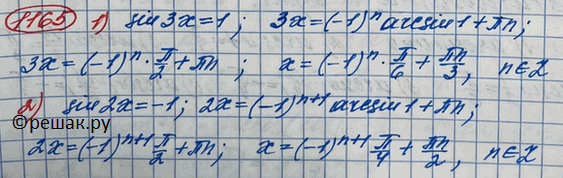 1165 1) sin 3x = 1 ; 3x = (-1)ⁿ arcsin 1 + πn ;
3x = (-1)ⁿ · π/2 + πn ; x = (-1)ⁿ · π/6 + πn/3 , n ∈ Z
2) sin 2x = -1 ; 2x = (-1)ⁿ⁺¹ arcsin 1 + πn ;
©решак.ру
2x = (-1)ⁿ⁺¹ π/2 + πn ; x = (-1)ⁿ⁺¹ π/4 + πn/2 , n ∈ Z